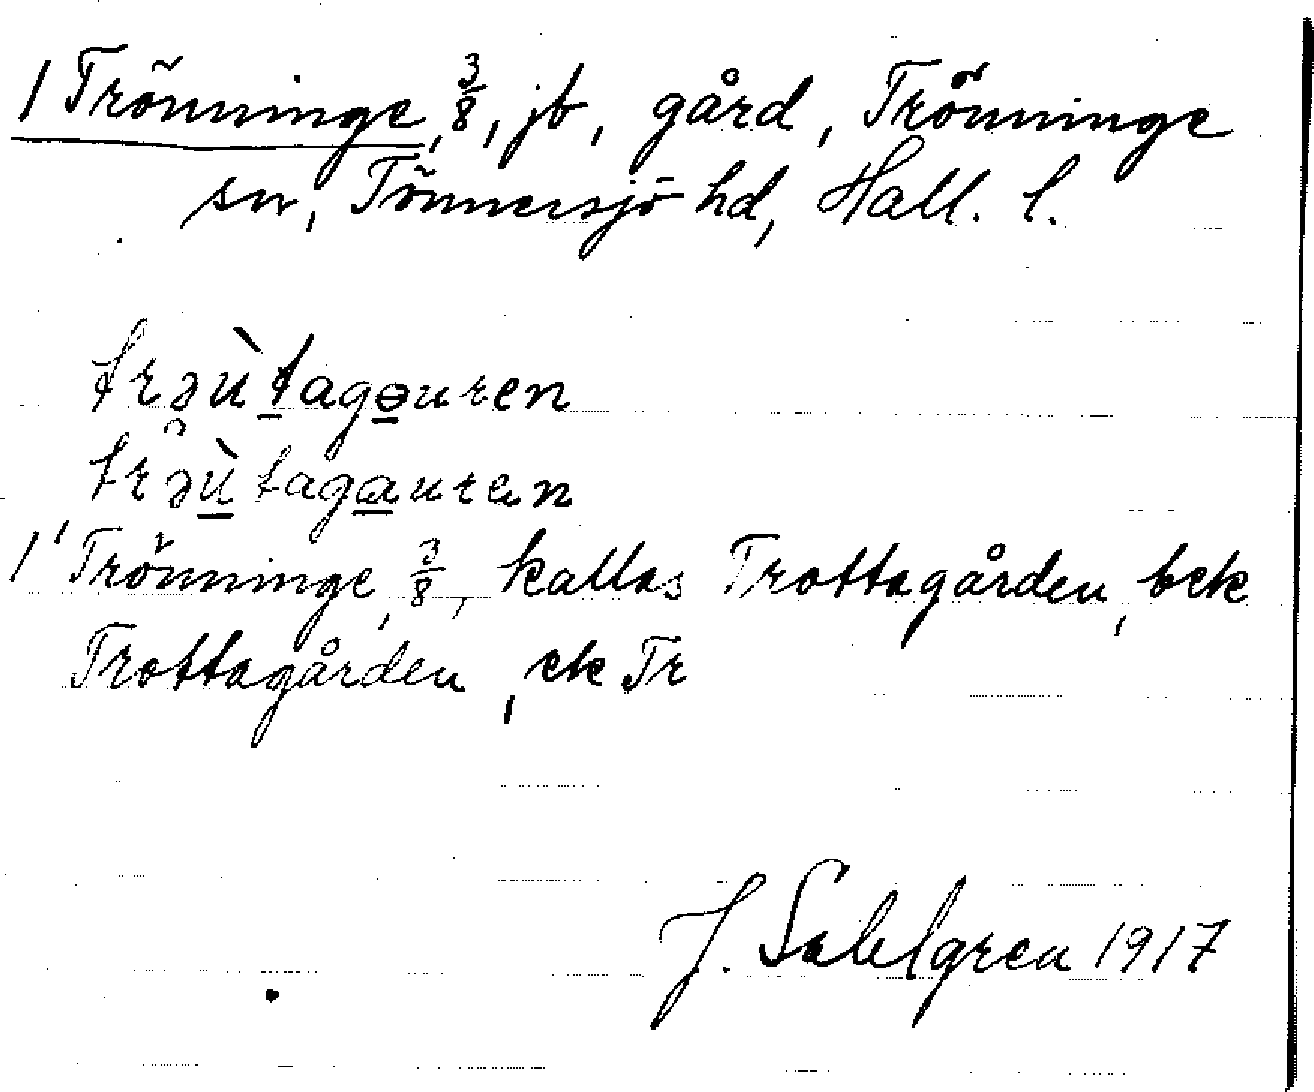 1 Trönninge, 3/8, jb, gård, Trönninge
sn, Tönnersjö hd, Hall. l.
trəùtagɵuren
trəùtagauren
1' Trönninge, 3/8, kallas Trottagården, bek
Trottagården, ek Tr
J. Sahlgren 1917